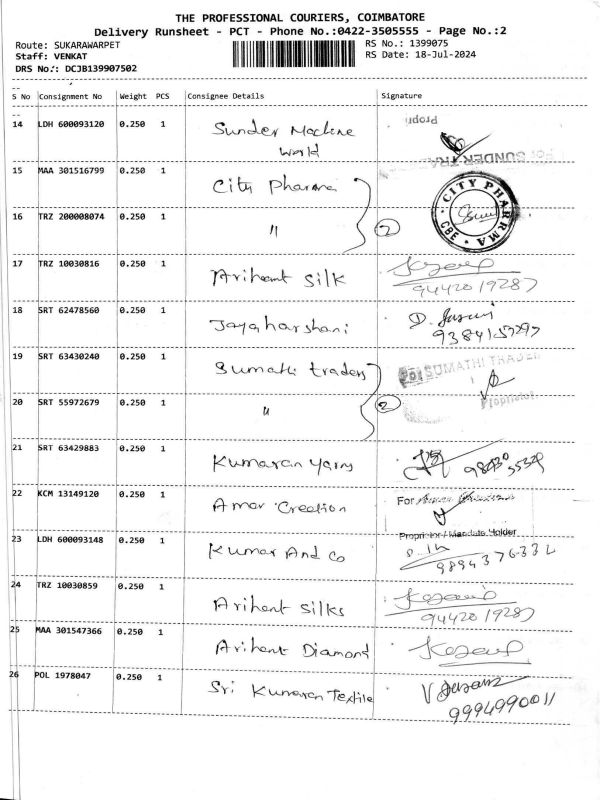 THE PROFESSIONAL COURIERS, COIMBATORE
Delivery Runsheet - PCT - Phone No.:0422-3505555 - Page No.:2
Route: SUKARAWARPET RS No.: 1399075
Staff: VENKAT RS Date: 18-Jul-2024
DRS No.: DCJB139907502
S No Consignment No Weight PCS Consignee Details Signature
14 LDH 600093120 0.250 1 Sunder Machine
World
SUNDER TRA
15 MAA 301516799 0.250 1 City Pharma
CITY PHARMA CBE
16 TRZ 200008074 0.250 1 " 2
17 TRZ 10030816 0.250 1 Arihant Silk
9442019287
18 SRT 62478560 0.250 1 Jayaharshani
19 SRT 63430240 0.250 1 Sumathi traders
SUMATHI TRADER
Proprietor
20 SRT 55972679 0.250 1 " 2
21 SRT 63429883 0.250 1 Kumaran Yarns
22 KCM 13149120 0.250 1 Amar Creation
For
Proprietor / Mandate Holder
23 LDH 600093148 0.250 1 Kumar And Co
9894376332
24 TRZ 10030859 0.250 1 Arihant Silks
9442019287
25 MAA 301547366 0.250 1 Arihant Diamond
26 POL 1978047 0.250 1 Sri Kumaran Textile
9994990011